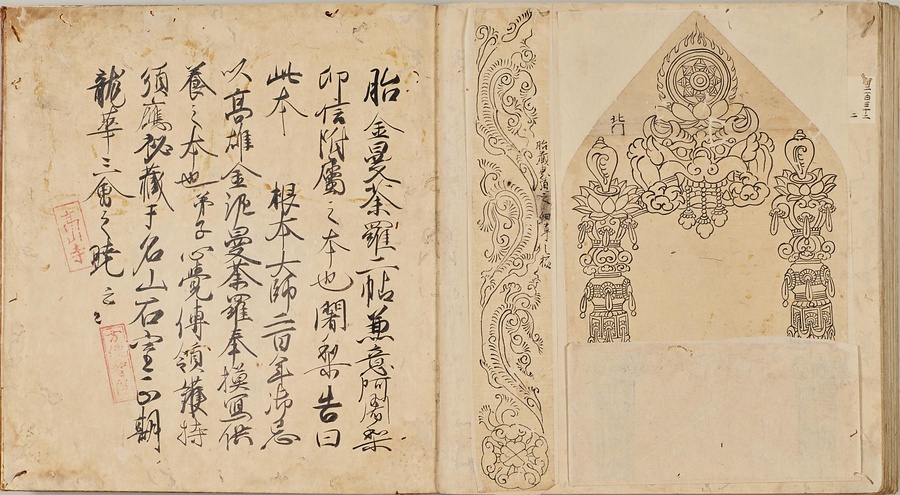 胎金曼荼羅二帖兼意阿闍梨
印信附属之本也闍梨告曰
此本 根本大師二百年御忌
以高雄金泥曼荼羅奉摸寫供
養之本也弟子心覺傳領護持
須應秘藏于名山石室正期
龍華三會之曉云々
高山寺
北門